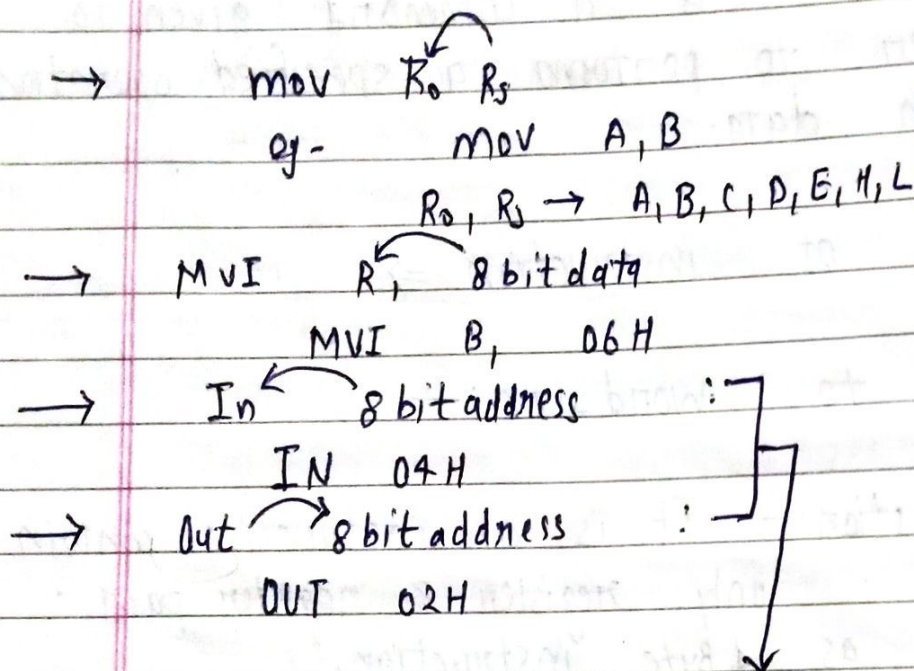 → mov R₀ Rs
eg- mov A, B
R₀, Rs → A, B, C, D, E, H, L
→ MVI R, 8 bit data
MVI B, 06H
→ In 8 bit address :
IN 04H
→ Out 8 bit address :
OUT 02H